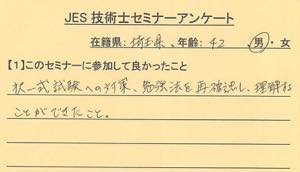 JES 技術士セミナーアンケート
在籍県:埼玉県、年齢:42 男・女
【1】このセミナーに参加して良かったこと
択一式試験への対策、勉強法を再確認し、理解する
ことができたこと。